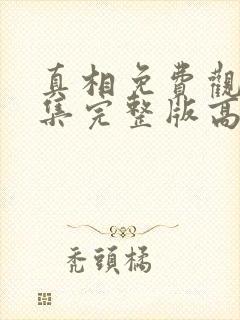 真相免費觀
集完整版高
禿頭橘